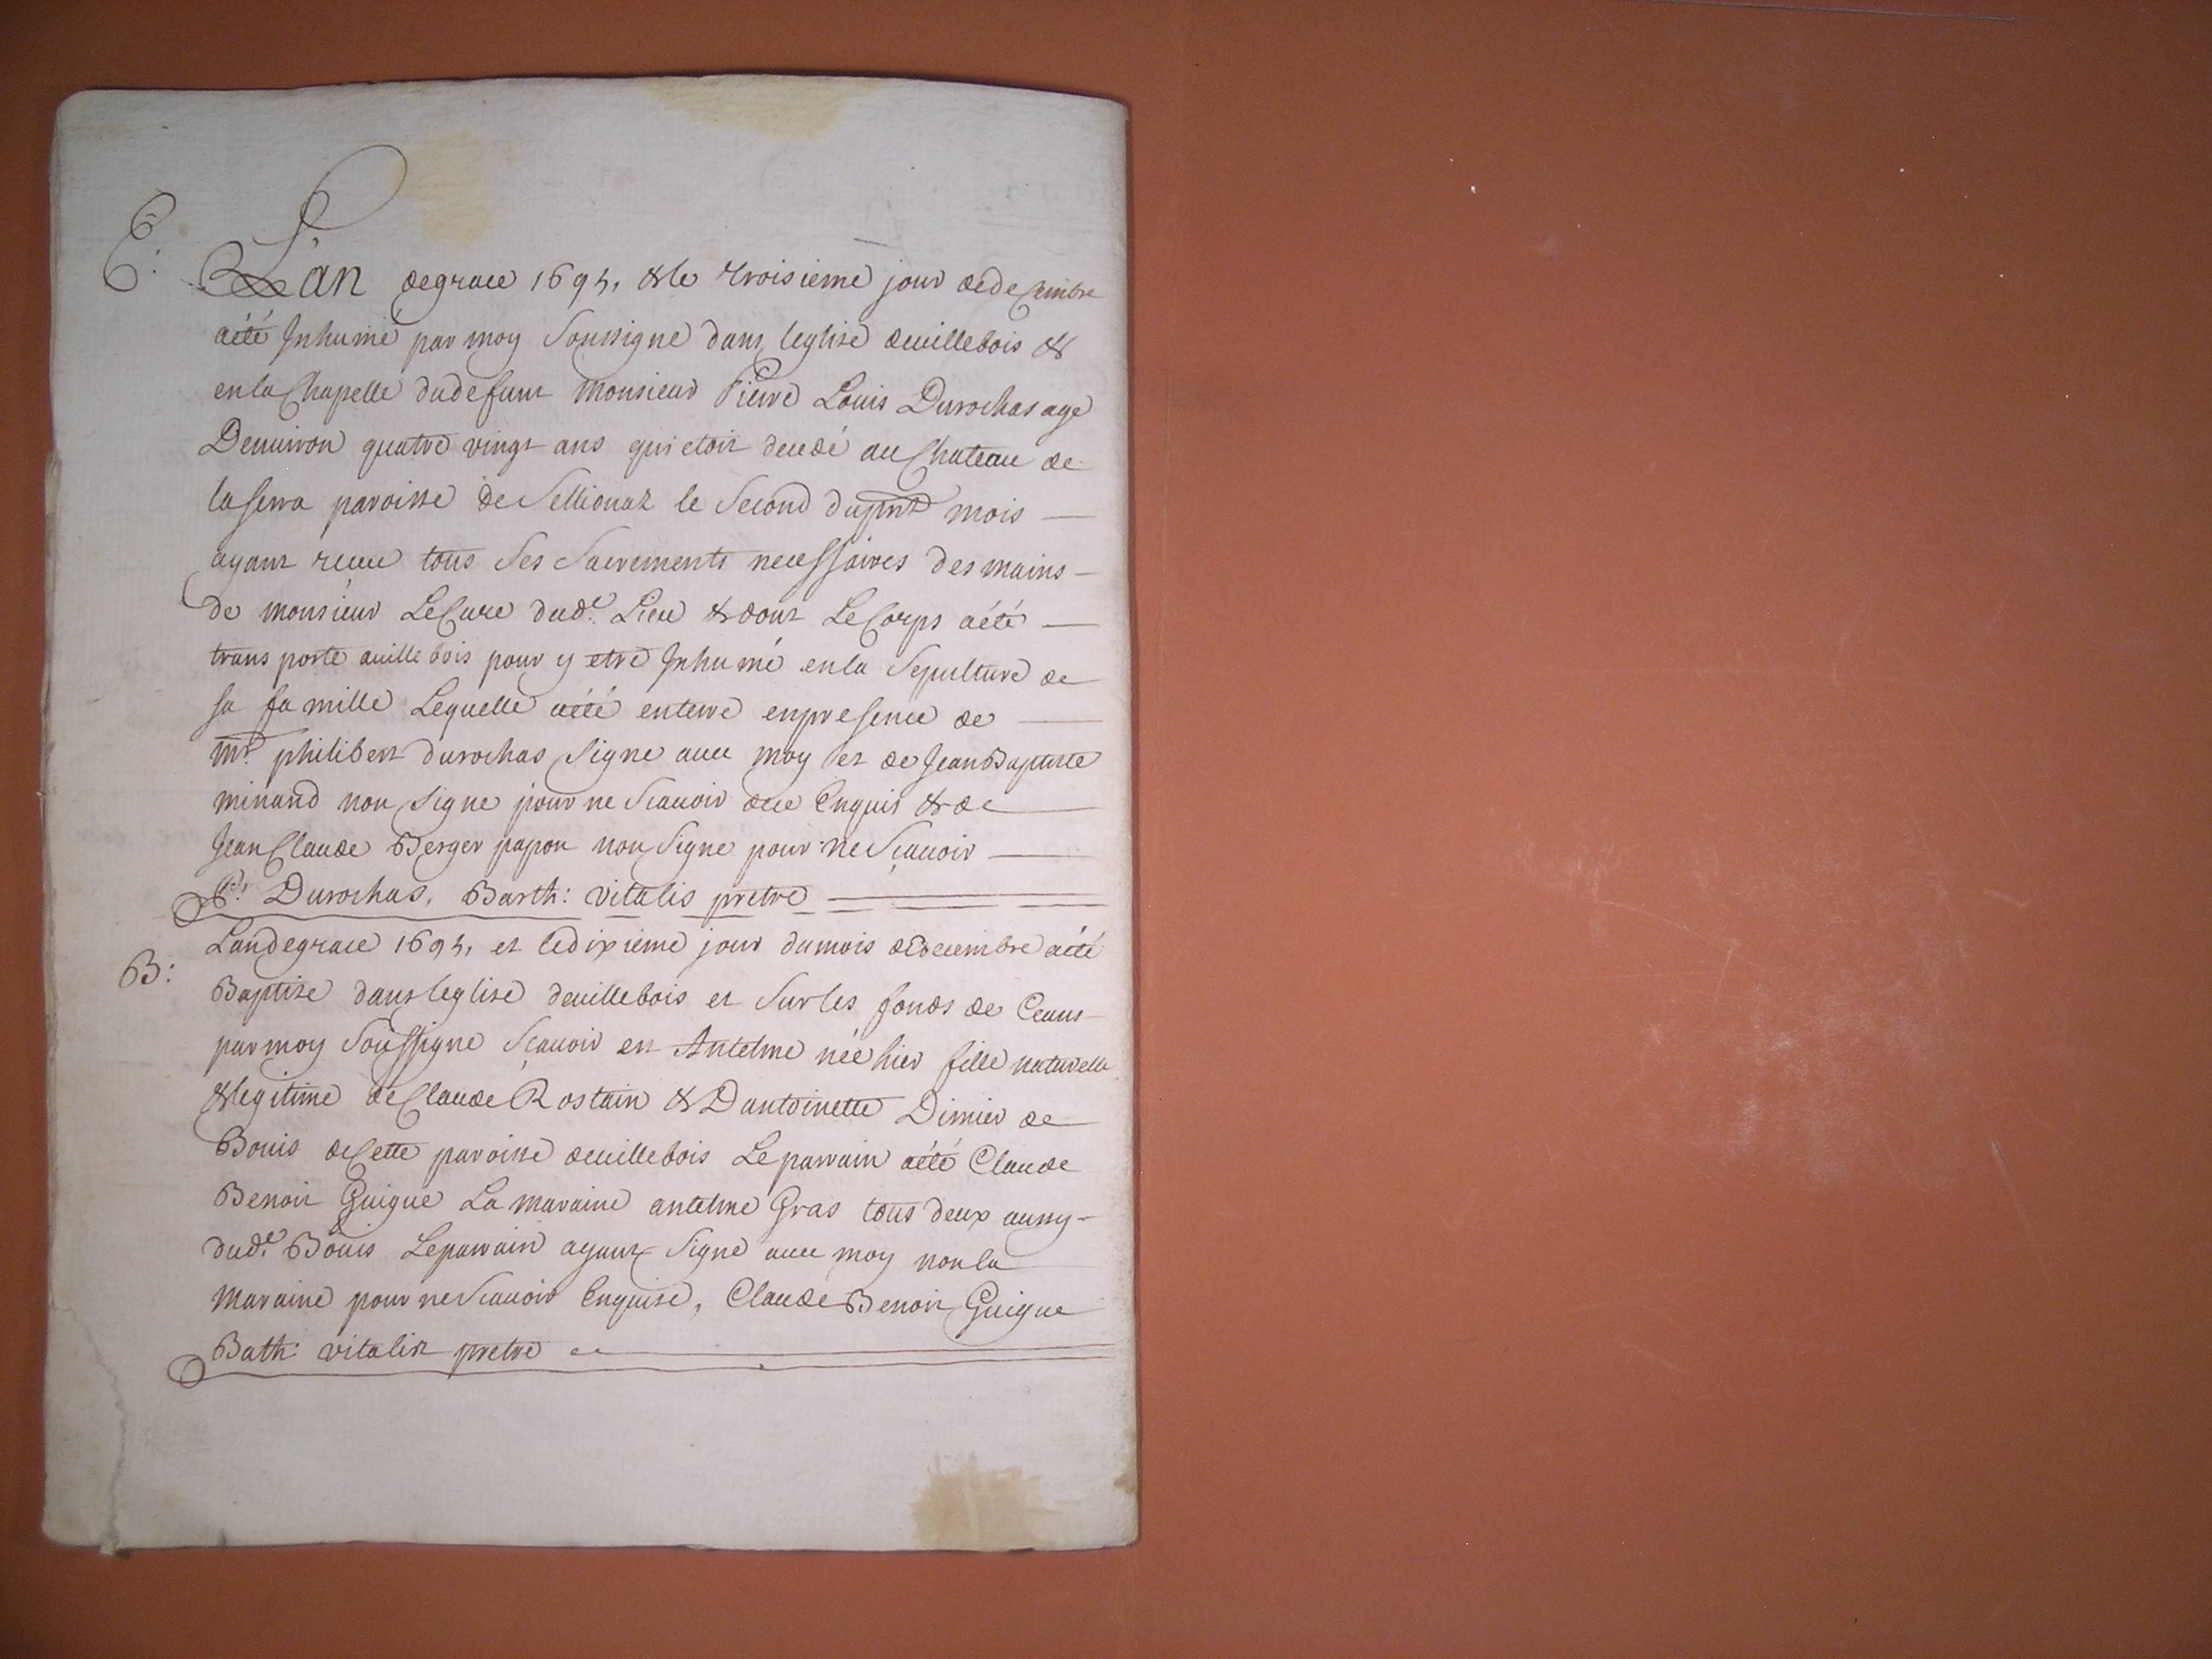 E:
L'an de grace 1695, & le troisieme jour de decembre
a été Inhumé par moy Soussigne dans leglise de villebois &
en la Chapelle du defunt Monsieur Pierre Louis Durochas age
Denuiron quatre vingt ans qui etoit decedé au Chateau de
la serra paroisse de Sellionaz le Second du pnt mois
ayant receu tous Ses Sacrements necessaires des mains
de monsieur Le Cure dud.t Lieu & dont Le Corps a été
transporté a uillebois pour y etre Inhumé en la Sepulture de
sa famille Lequelle a été enterre en presence de
Mr. philibert durochas Signe auec moy et de Jean Baptiste
minand non Signe pour ne Scauoir de ce Enquis & de
Jean Claude Berger papon non Signe pour ne Scauoir
P.r Durochas, Barth: Vitalis pretre
B:
Lan de grace 1695, et le dixieme jour du mois de decembre a été
Baptise dans leglise de uillebois et Sur les fonds de Ceans
par moy Soussigne Scauoir est Antelme née hier fille naturelle
& legitime de Claude Rostain & Dantoinette Dimier de
Bouis de Cette paroisse de uillebois Le parrain a été Claude
Benoit Guigue La maraine antelme Gras tous deux aussy
dud.t Bouis Le parrain ayant Signe auec moy non la
maraine pour ne Scauoir Enquise, Claude Benoit Guigue
Bath: vitalis pretre